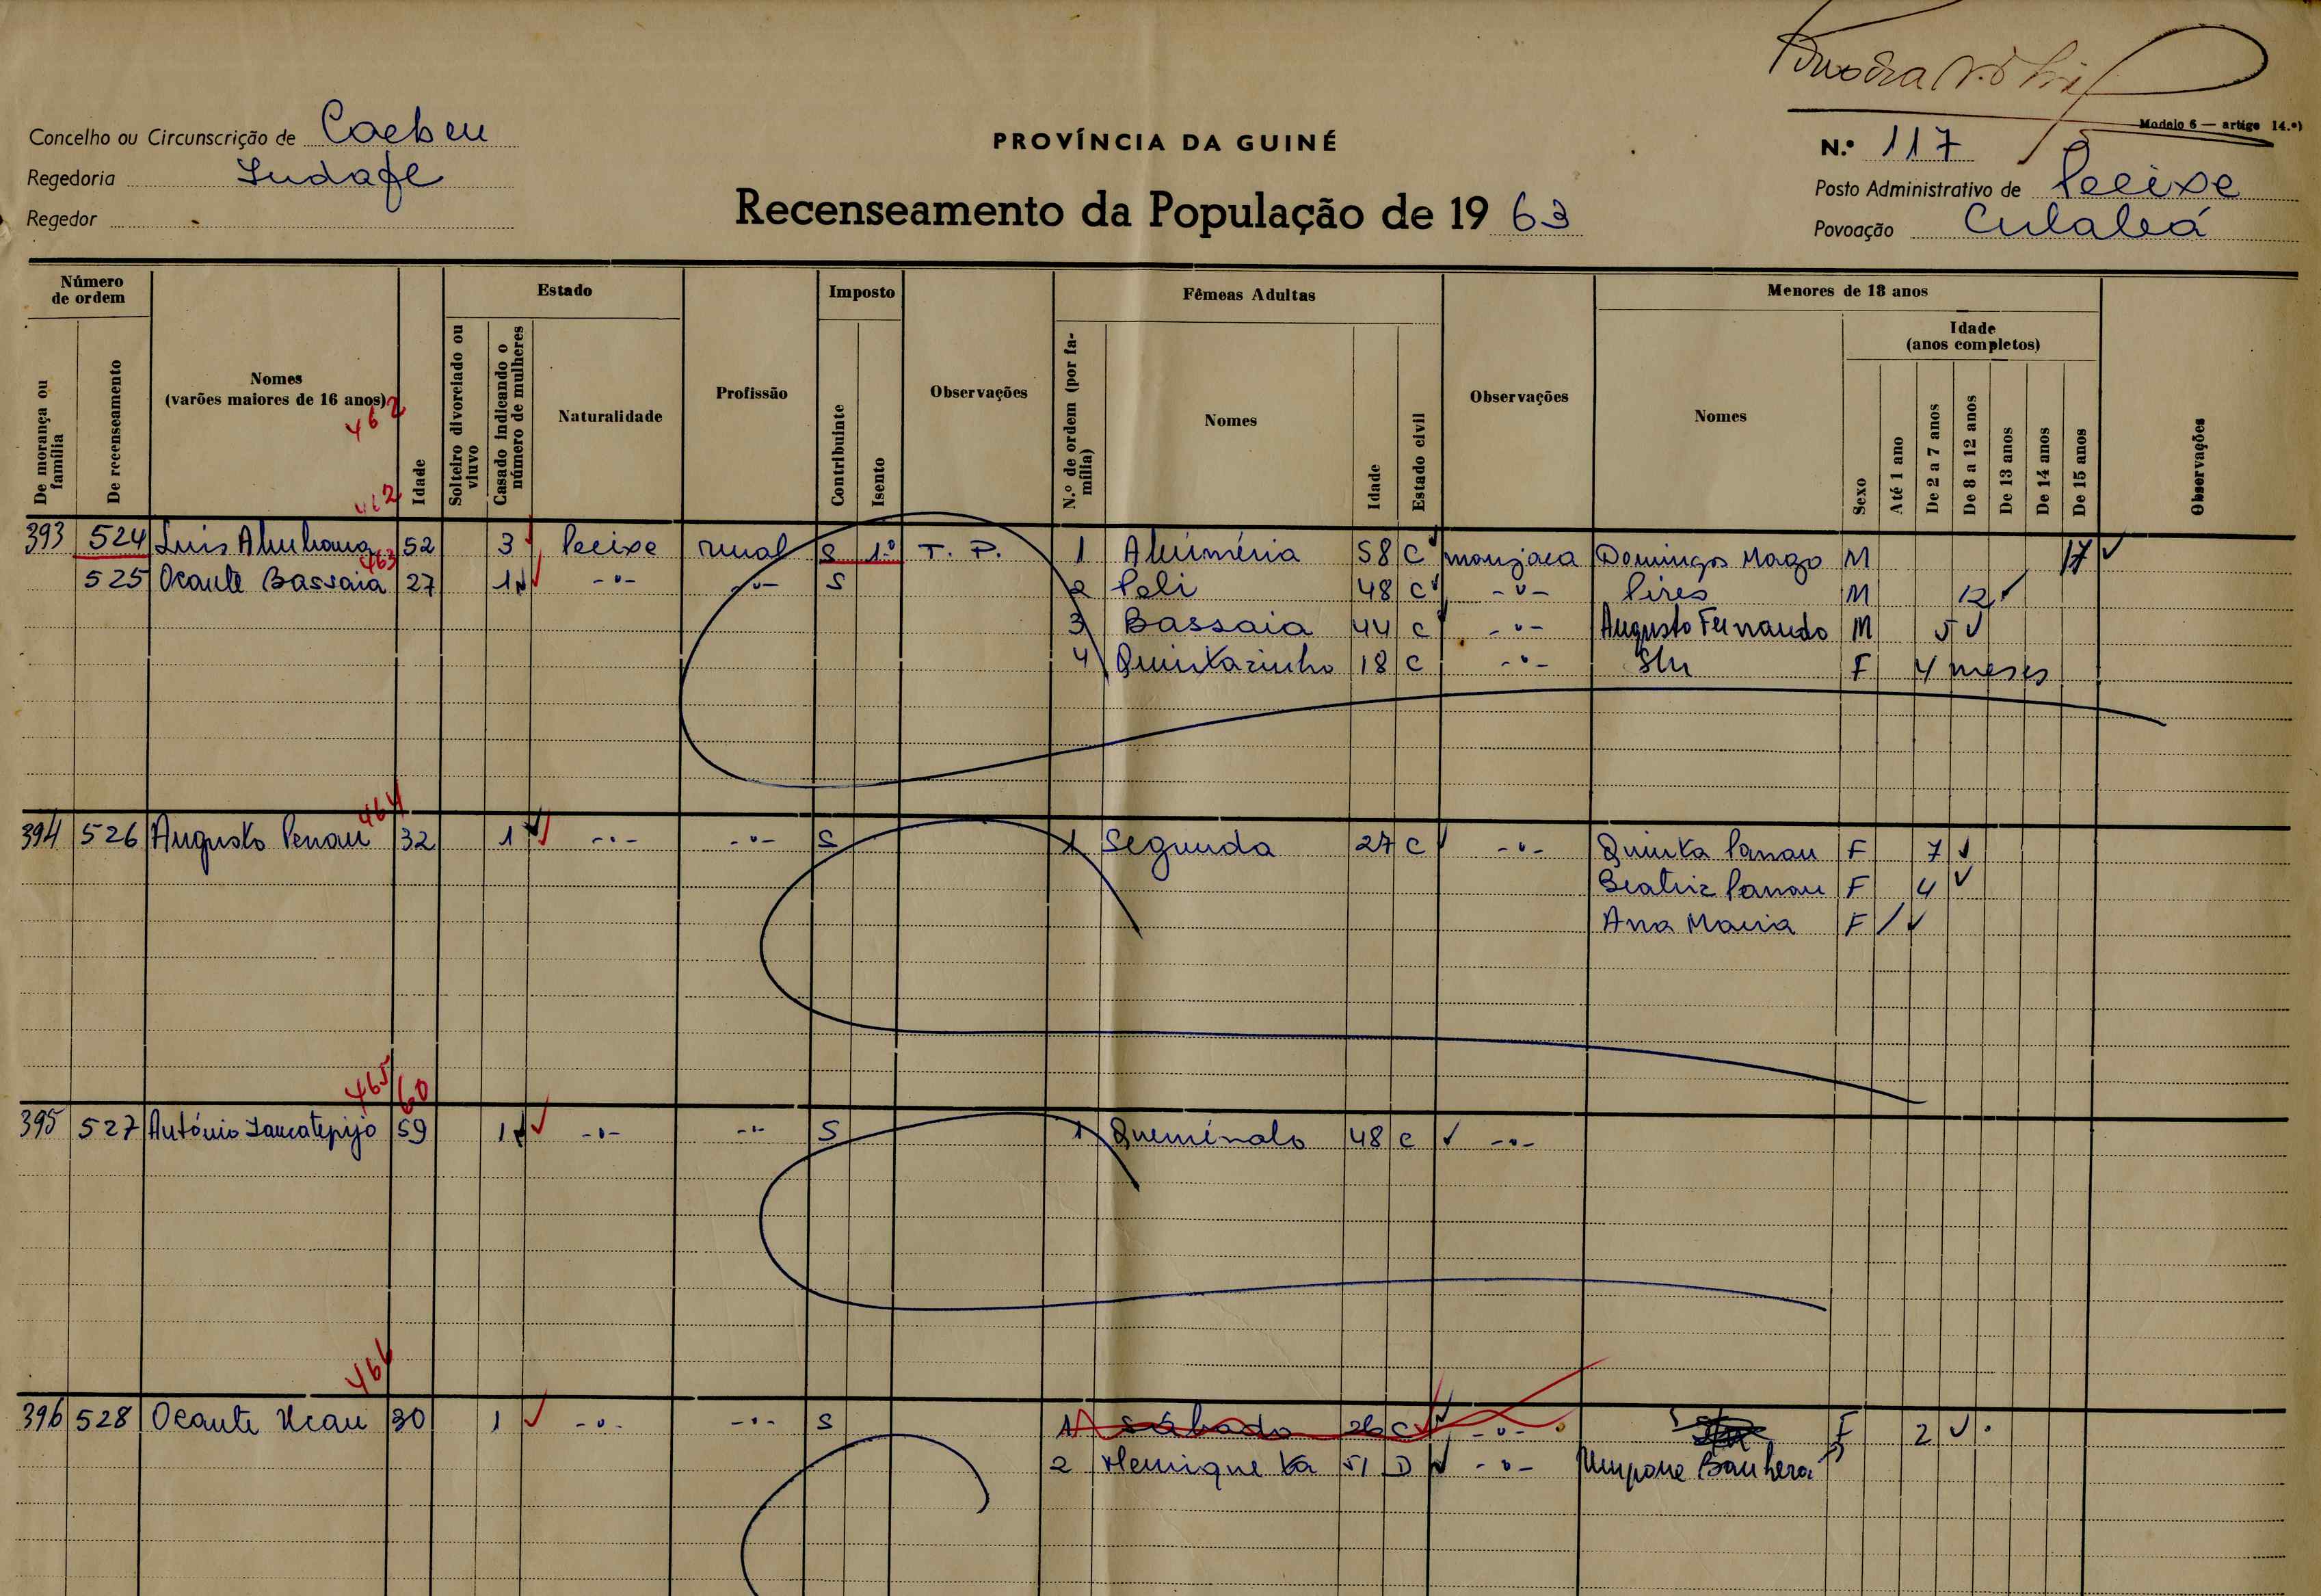 Modelo 6 — artigo 14.º)
Concelho ou Circunscrição de Caebeu
PROVÍNCIA DA GUINÉ
N.º 117
Regedoria
Posto Administrativo de Pecixe
Recenseamento da População de 1963
Regedor
Povoação Culaleá
Número de ordem
Estado
Imposto
Fêmeas Adultas
Menores de 18 anos
Idade (anos completos)
De morança ou família
De recenseamento
Nomes (varões maiores de 16 anos)
Idade
Solteiro divorciado ou viuvo
Casado indicando o número de mulheres
Naturalidade
Profissão
Contribuinte
Isento
Observações
N.º de ordem (por família)
Nomes
Idade
Estado civil
Observações
Nomes
Sexo
Até 1 ano
De 2 a 7 anos
De 8 a 12 anos
De 13 anos
De 14 anos
De 15 anos
Observações
462
462
393 524 Luis 52 3 Pecixe rural S 1.º T. P. 1 58 C manjaca Domingos Mago M 17
463
525 Ocante Bassaia 27 1 -"- -"- S 2 Peli 48 C -"- Pires M 12
3 Bassaia 44 C -"- Augusto Fernando M 5
4 Quintazinho 18 C -"- F 4 meses
464
394 526 Augusto Penau 32 1 -"- -"- S 1 Segunda 27 C -"- Quinta Panau F 7
Beatriz Panau F 4
Ana Maria F /
465 60
395 527 António 59 1 -"- -"- S 1 Queminalo 48 C -"-
466
396 528 Ocante Ucau 30 1 -"- -"- S 1 Sábado 26 C -"- F 2
2 Henrique Ká 51 D -"-